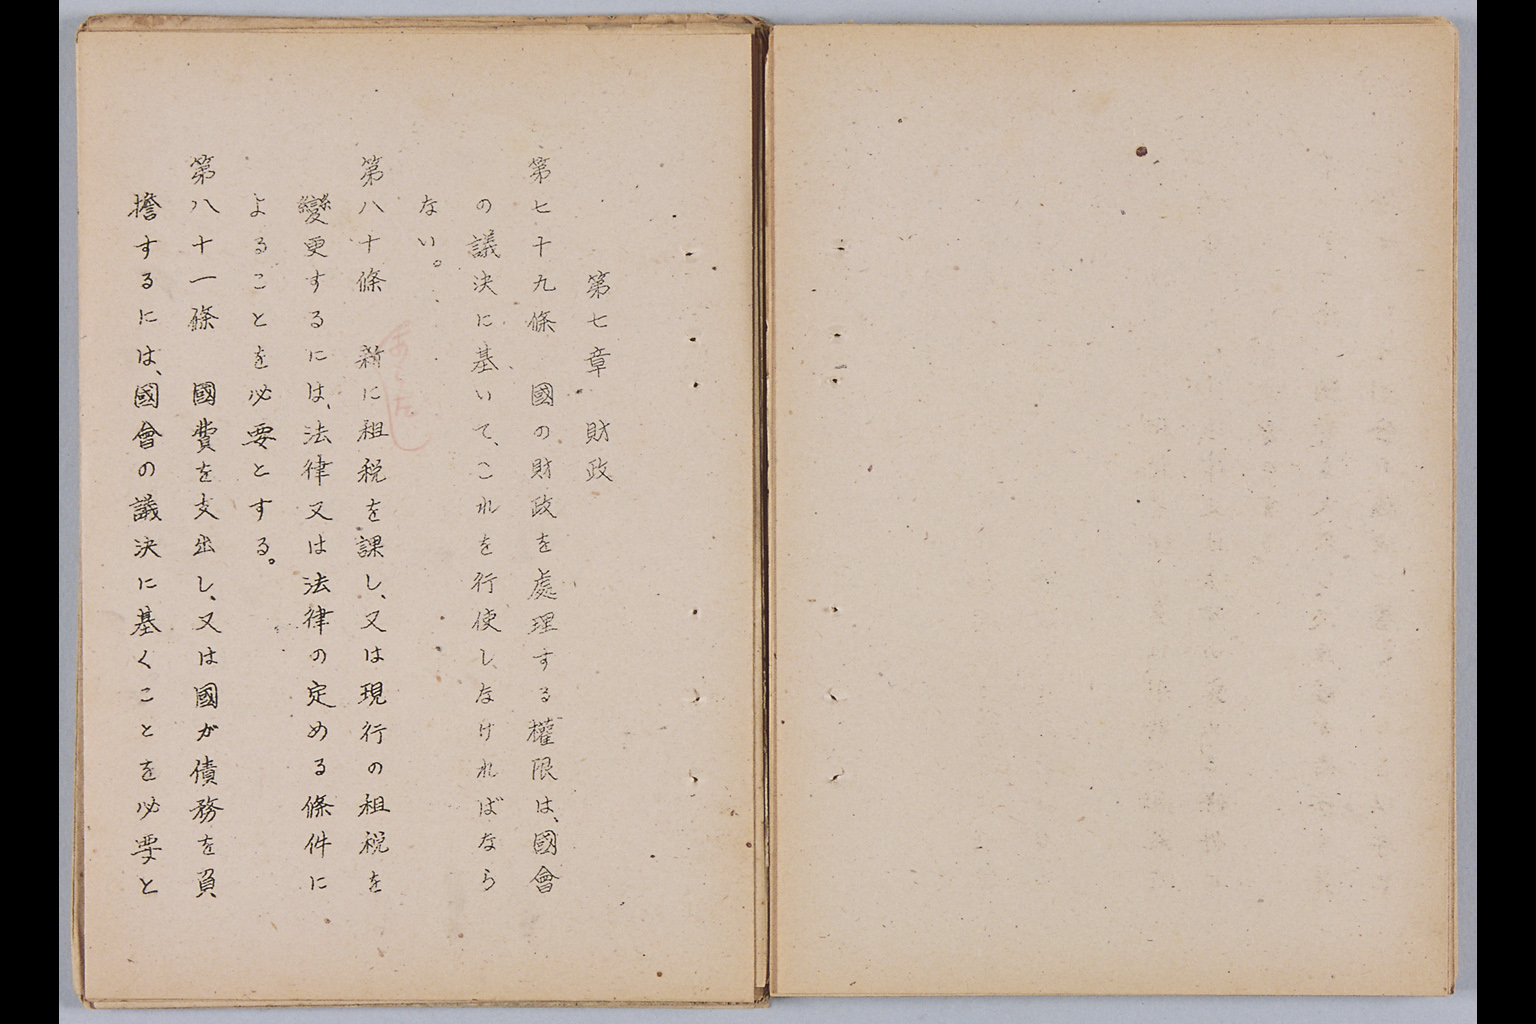 第七章　財政
第七十九條　國の財政を處理する權限は、國會
の議決に基いて、これを行使しなければなら
ない。
第八十條　新に租税を課し、又は現行の租税を
變更するには、法律又は法律の定める條件に
よることを必要とする。
第八十一條　國費を支出し、又は國が債務を負
擔するには、國會の議決に基くことを必要と